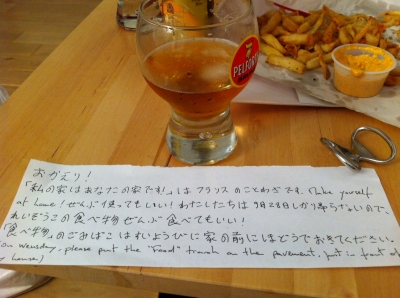 PELFORT
おかえり!
「私の家はあなたの家です!」は フランス のことわざです. Make yourself
at home! ぜんぶ 使ってもいい! わたしたちは 9月28日しかり帰らないので、
れいぞうこの 食べ物 ぜんぶ 食べてもいい!
「食べ物」のごみばこ はすいようびに 家の前に ほどうでおきてください。
on Wensday, please put the "Food" trash on the pavement, just in front of
house)